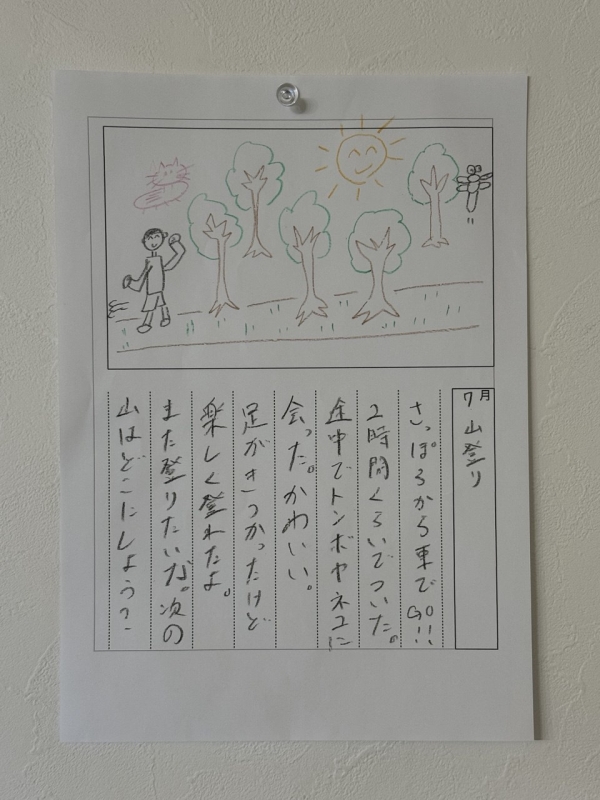 7月 山登り
さっぽろから車でGO!!
2時間くらいでついた。
途中でトンボやネコに
会った。かわいい。
足がきつかったけど
楽しく登れたよ。
また登りたいな。次の
山はどこにしよう?